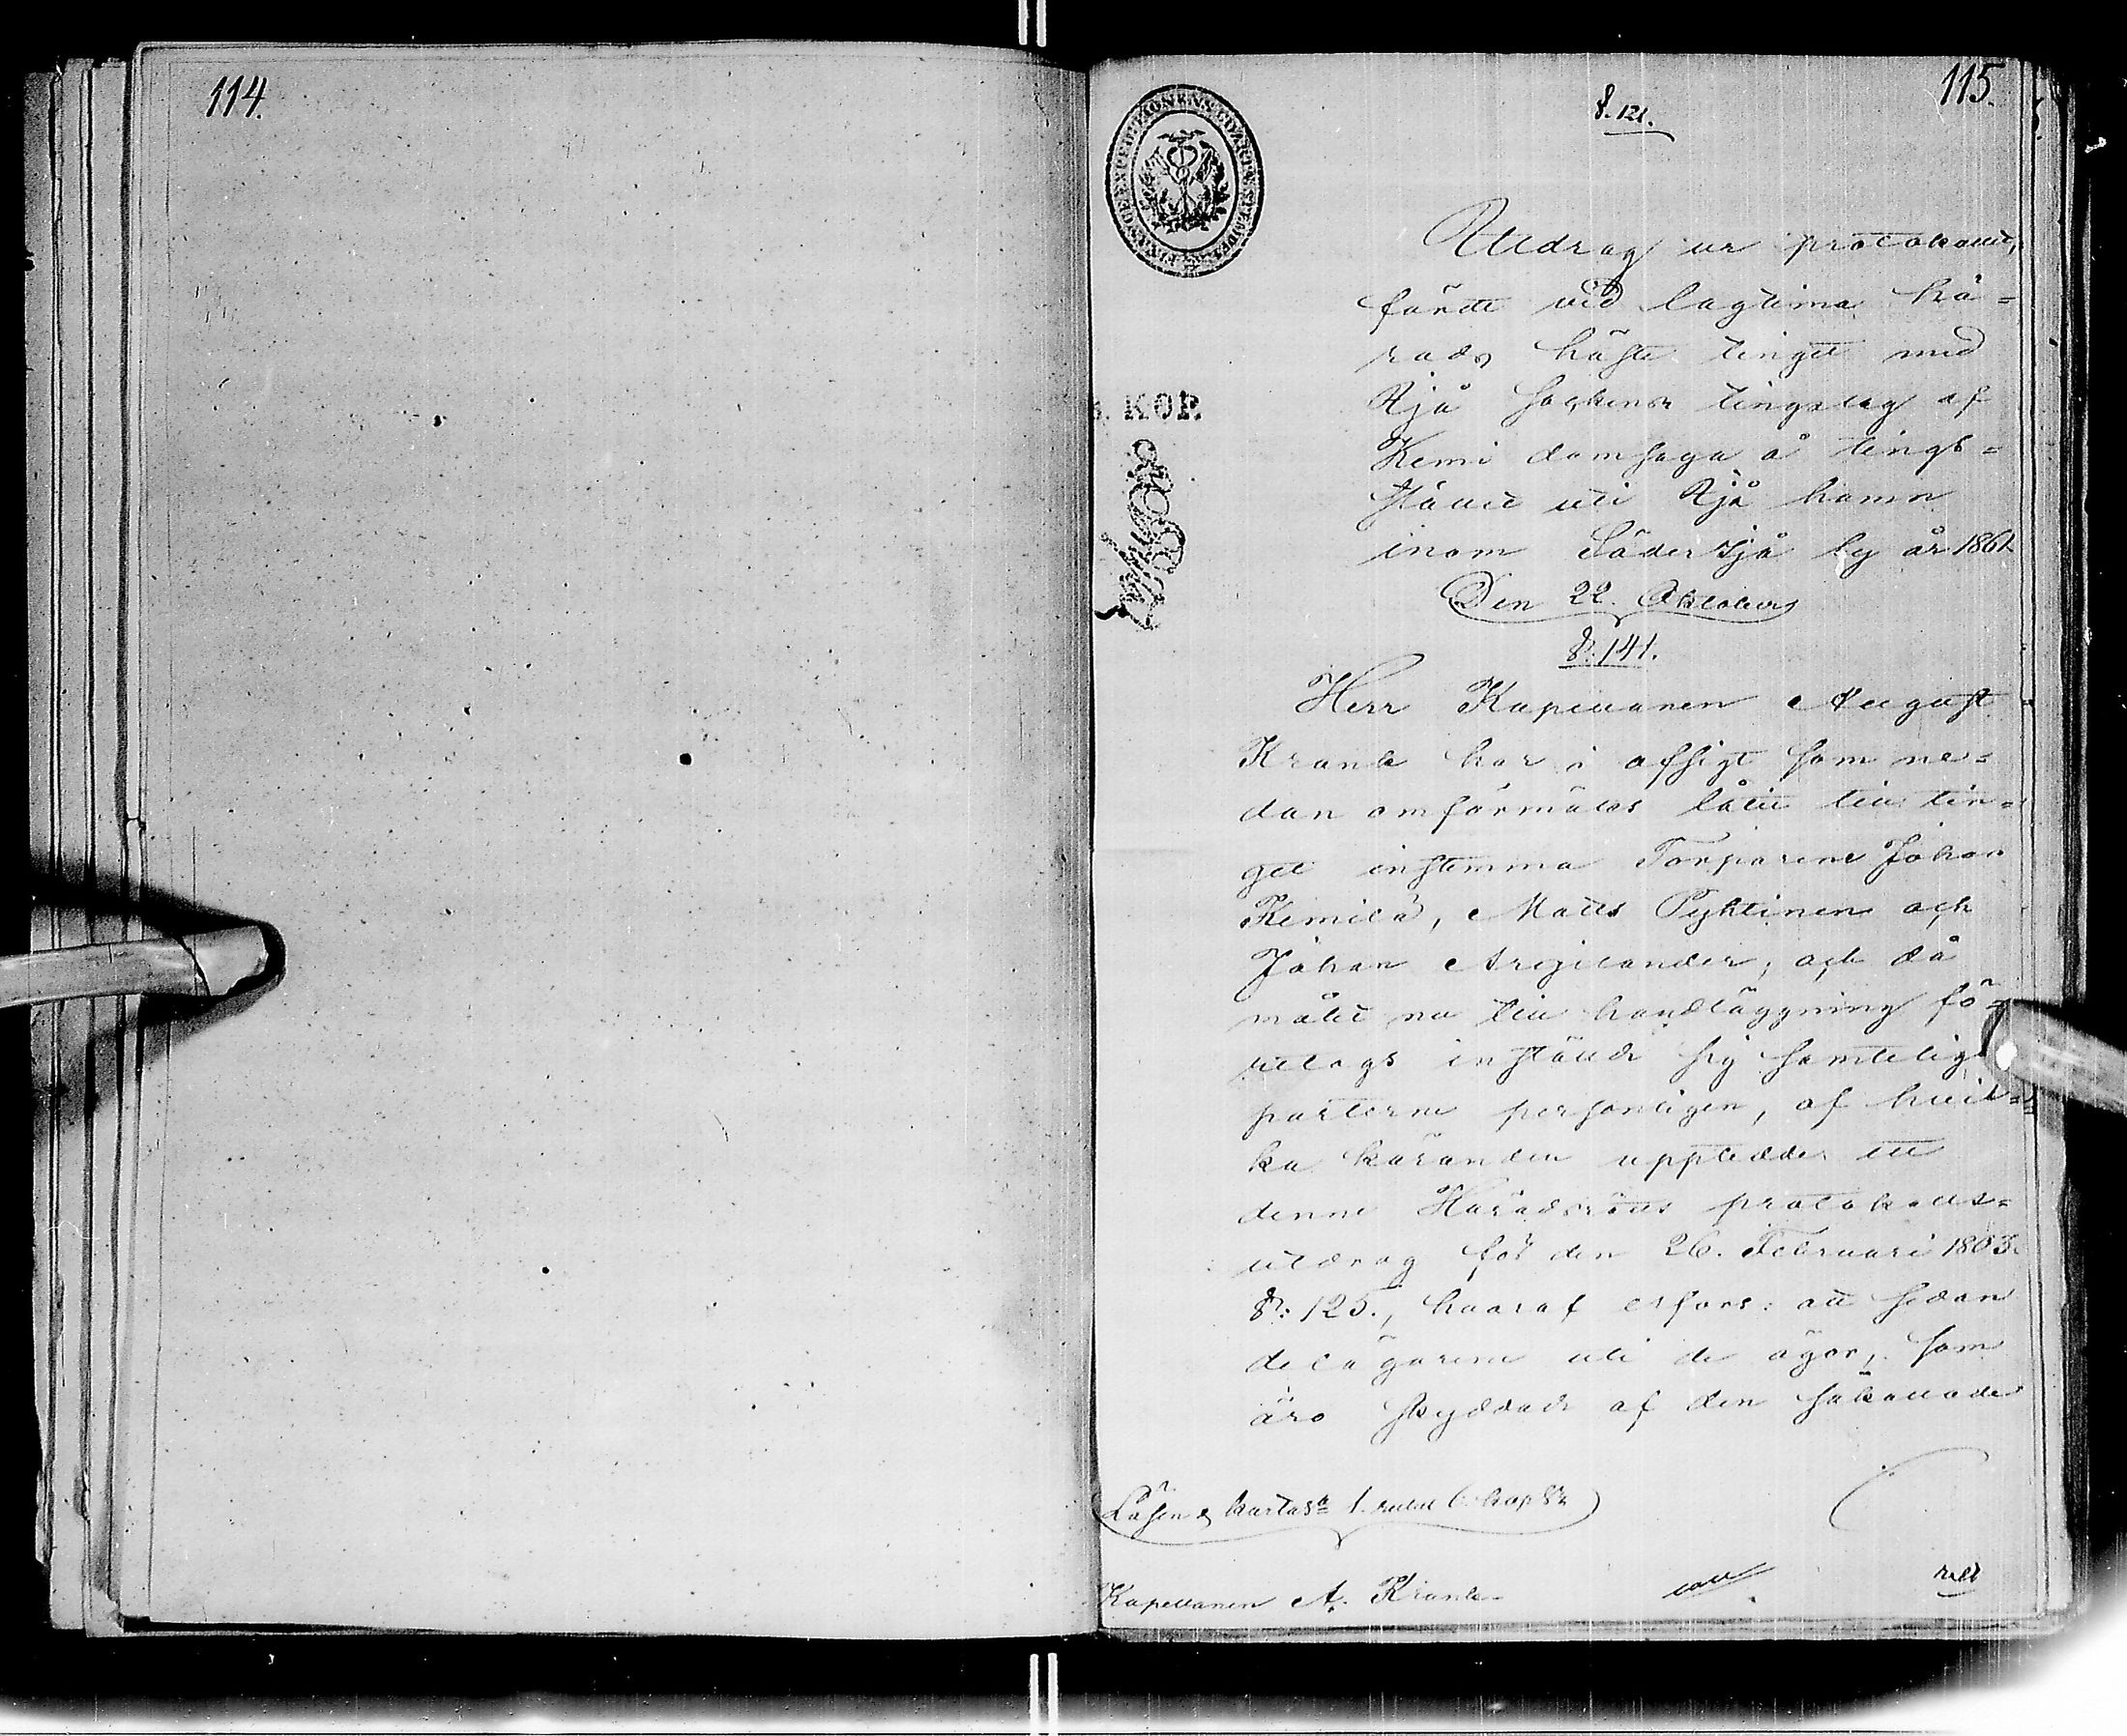 114.
115.
§. 121.
Utdrag ur protokollet,
fördt vid lagtima hä-
rads höste tinget med
Ijo Sockens tingslag af
Kemi domsaga å tings-
stället uti Ijo hamn
inom Söder Ijo by år 1861
Den 22. Oktober
§. 141.
Herr Kapellanen August
Krank har i afsigt som ne-
dan omförmäles låtit till tin-
get instemma Torparene Johan
Kemilä, Matts Pyktinen och
Johan Argilander, och då
målet nu till handläggning fö-
retogs instälde sig samtelige
parterne personligen, af hvil-
ka käranden uppteddde ett
denne Häradsrätts protokolls-
utdrag för den 26. Februari 1863
§: 125., hvaraf erfors: att sedan
delägarene uti de ägor, som
äro skyddade af den såkallade
Lösen & karta 1. rubel 6. kop. Sr
Kapellanen A. Krank
KOP.